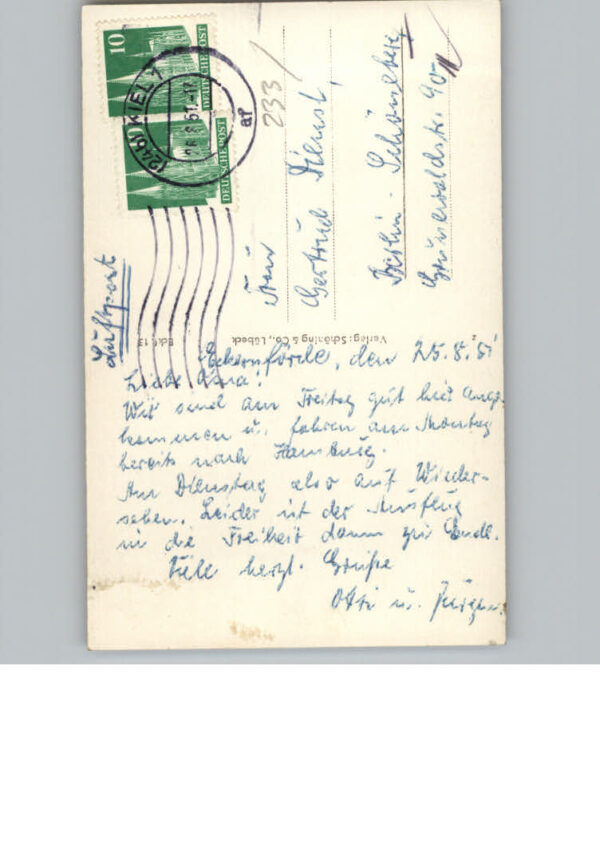 10
DEUTSCHE POST
10
DEUTSCHE POST
(24b) KIEL 1
26.8.51.-17
ar
233
Luftpost
Frau
Gertrud Dienst,
Berlin-Schöneberg
Grunewaldstr. 90
Verlag: Schöning & Co., Lübeck
Eck 13
Eckernförde, den 25.8.51
Liebe Oma!
Wir sind am Freitag gut hier ange-
kommen u. fahren am Montag
bereits nach Hamburg.
Am Dienstag also auf Wieder-
sehen. Leider ist der Ausflug
in die Freiheit dann zu Ende.
Viele herzl. Grüße
u. Jürgen.